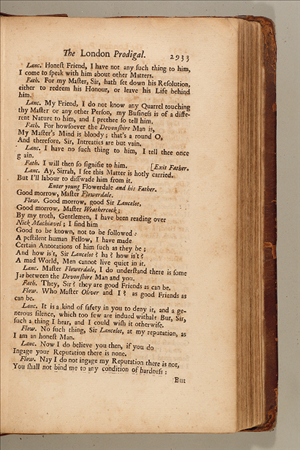 The London Prodigal. 2933
Lanc. Honest Friend, I have not any such thing to him,
I come to speak with him about other Matters.
Fath. For my Master, Sir, hath set down his Resolution,
either to redeem his Honour, or leave his Life behind
him.
Lanc. My Friend, I do not know any Quarrel touching
thy Master or any other Person, my Business is of a diffe-
rent Nature to him, and I prethee so tell him.
Fath. For howsoever the Devonshire Man is,
My Master's Mind is bloody; that's a round O,
And therefore, Sir, Intreaties are but vain.
Lanc. I have no such thing to him, I tell thee once
gain.
Fath. I will then so signifie to him. [Exit Father.
Lanc. Ay, Sirrah, I see this Matter is hotly carried,
But I'll labour to disswade him from it.
Enter young Flowerdale and his Father.
Good morrow, Master Flowerdale.
Flow. Good morrow, good Sir Lancelot,
Good morrow, Master Weathercock;
By my troth, Gentlemen, I have been reading over
Nick Machiavel; I find him
Good to be known, not to be followed:
A pestilent human Fellow, I have made
Certain Annotations of him such as they be;
And how is't, Sir Lancelot? ha? how is't?
A mad World, Men cannot live quiet in it.
Lanc. Master Flowerdale, I do understand there is some
Jar between the Devonshire Man and you.
Fath. They, Sir? they are good Friends as can be.
Flow. Who Master Oliver and I? as good Friends as
can be.
Lanc. It is a kind of safety in you to deny it, and a ge-
nerous silence, which too few are indued withal: But, Sir,
such a thing I hear, and I could wish it otherwise.
Flow. No such thing, Sir Lancelot, at my reputation, as
I am an honest Man.
Lanc. Now I do believe you then, if you do
Ingage your Reputation there is none.
Flow. Nay I do not ingage my Reputation there is not,
You shall not bind me to any condition of hardness:
But